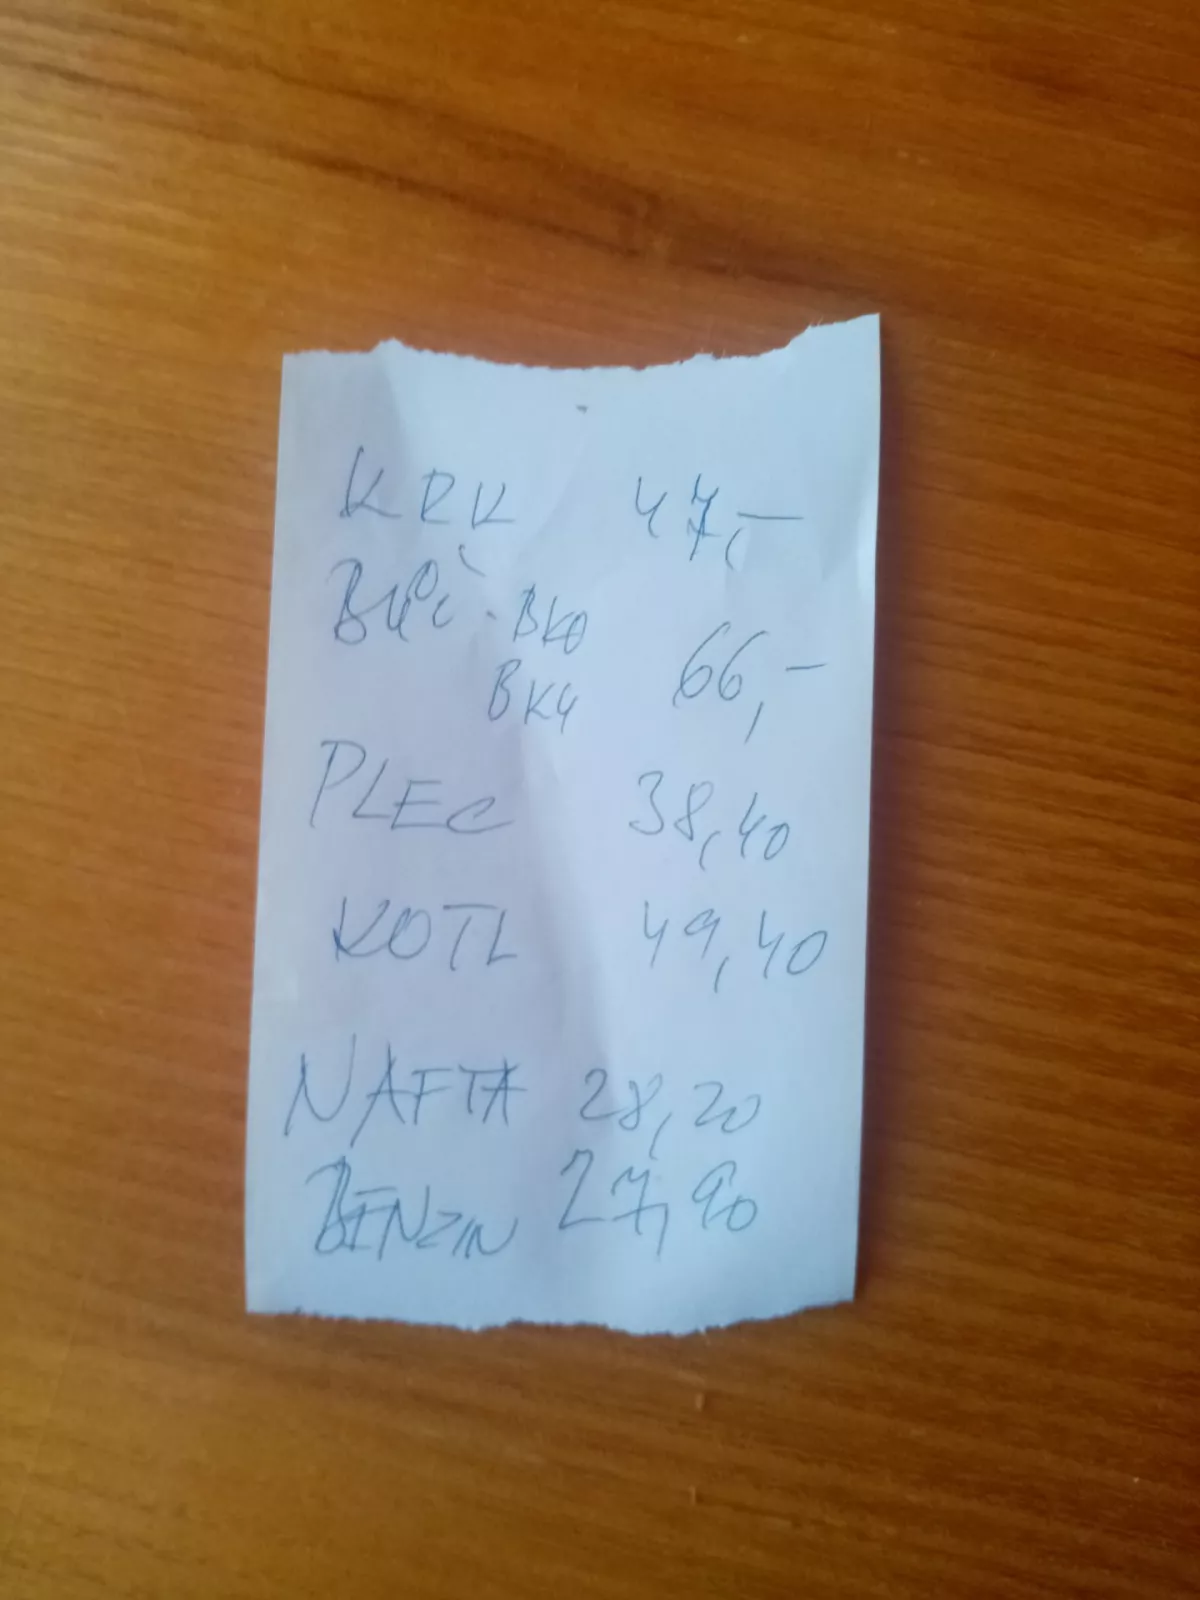 KRK 47,-
Bůč - BK0
BKČ 66,-
PLEC 38,40
KOTL 49,40
NAFTA 28,20
BENZIN 27,90